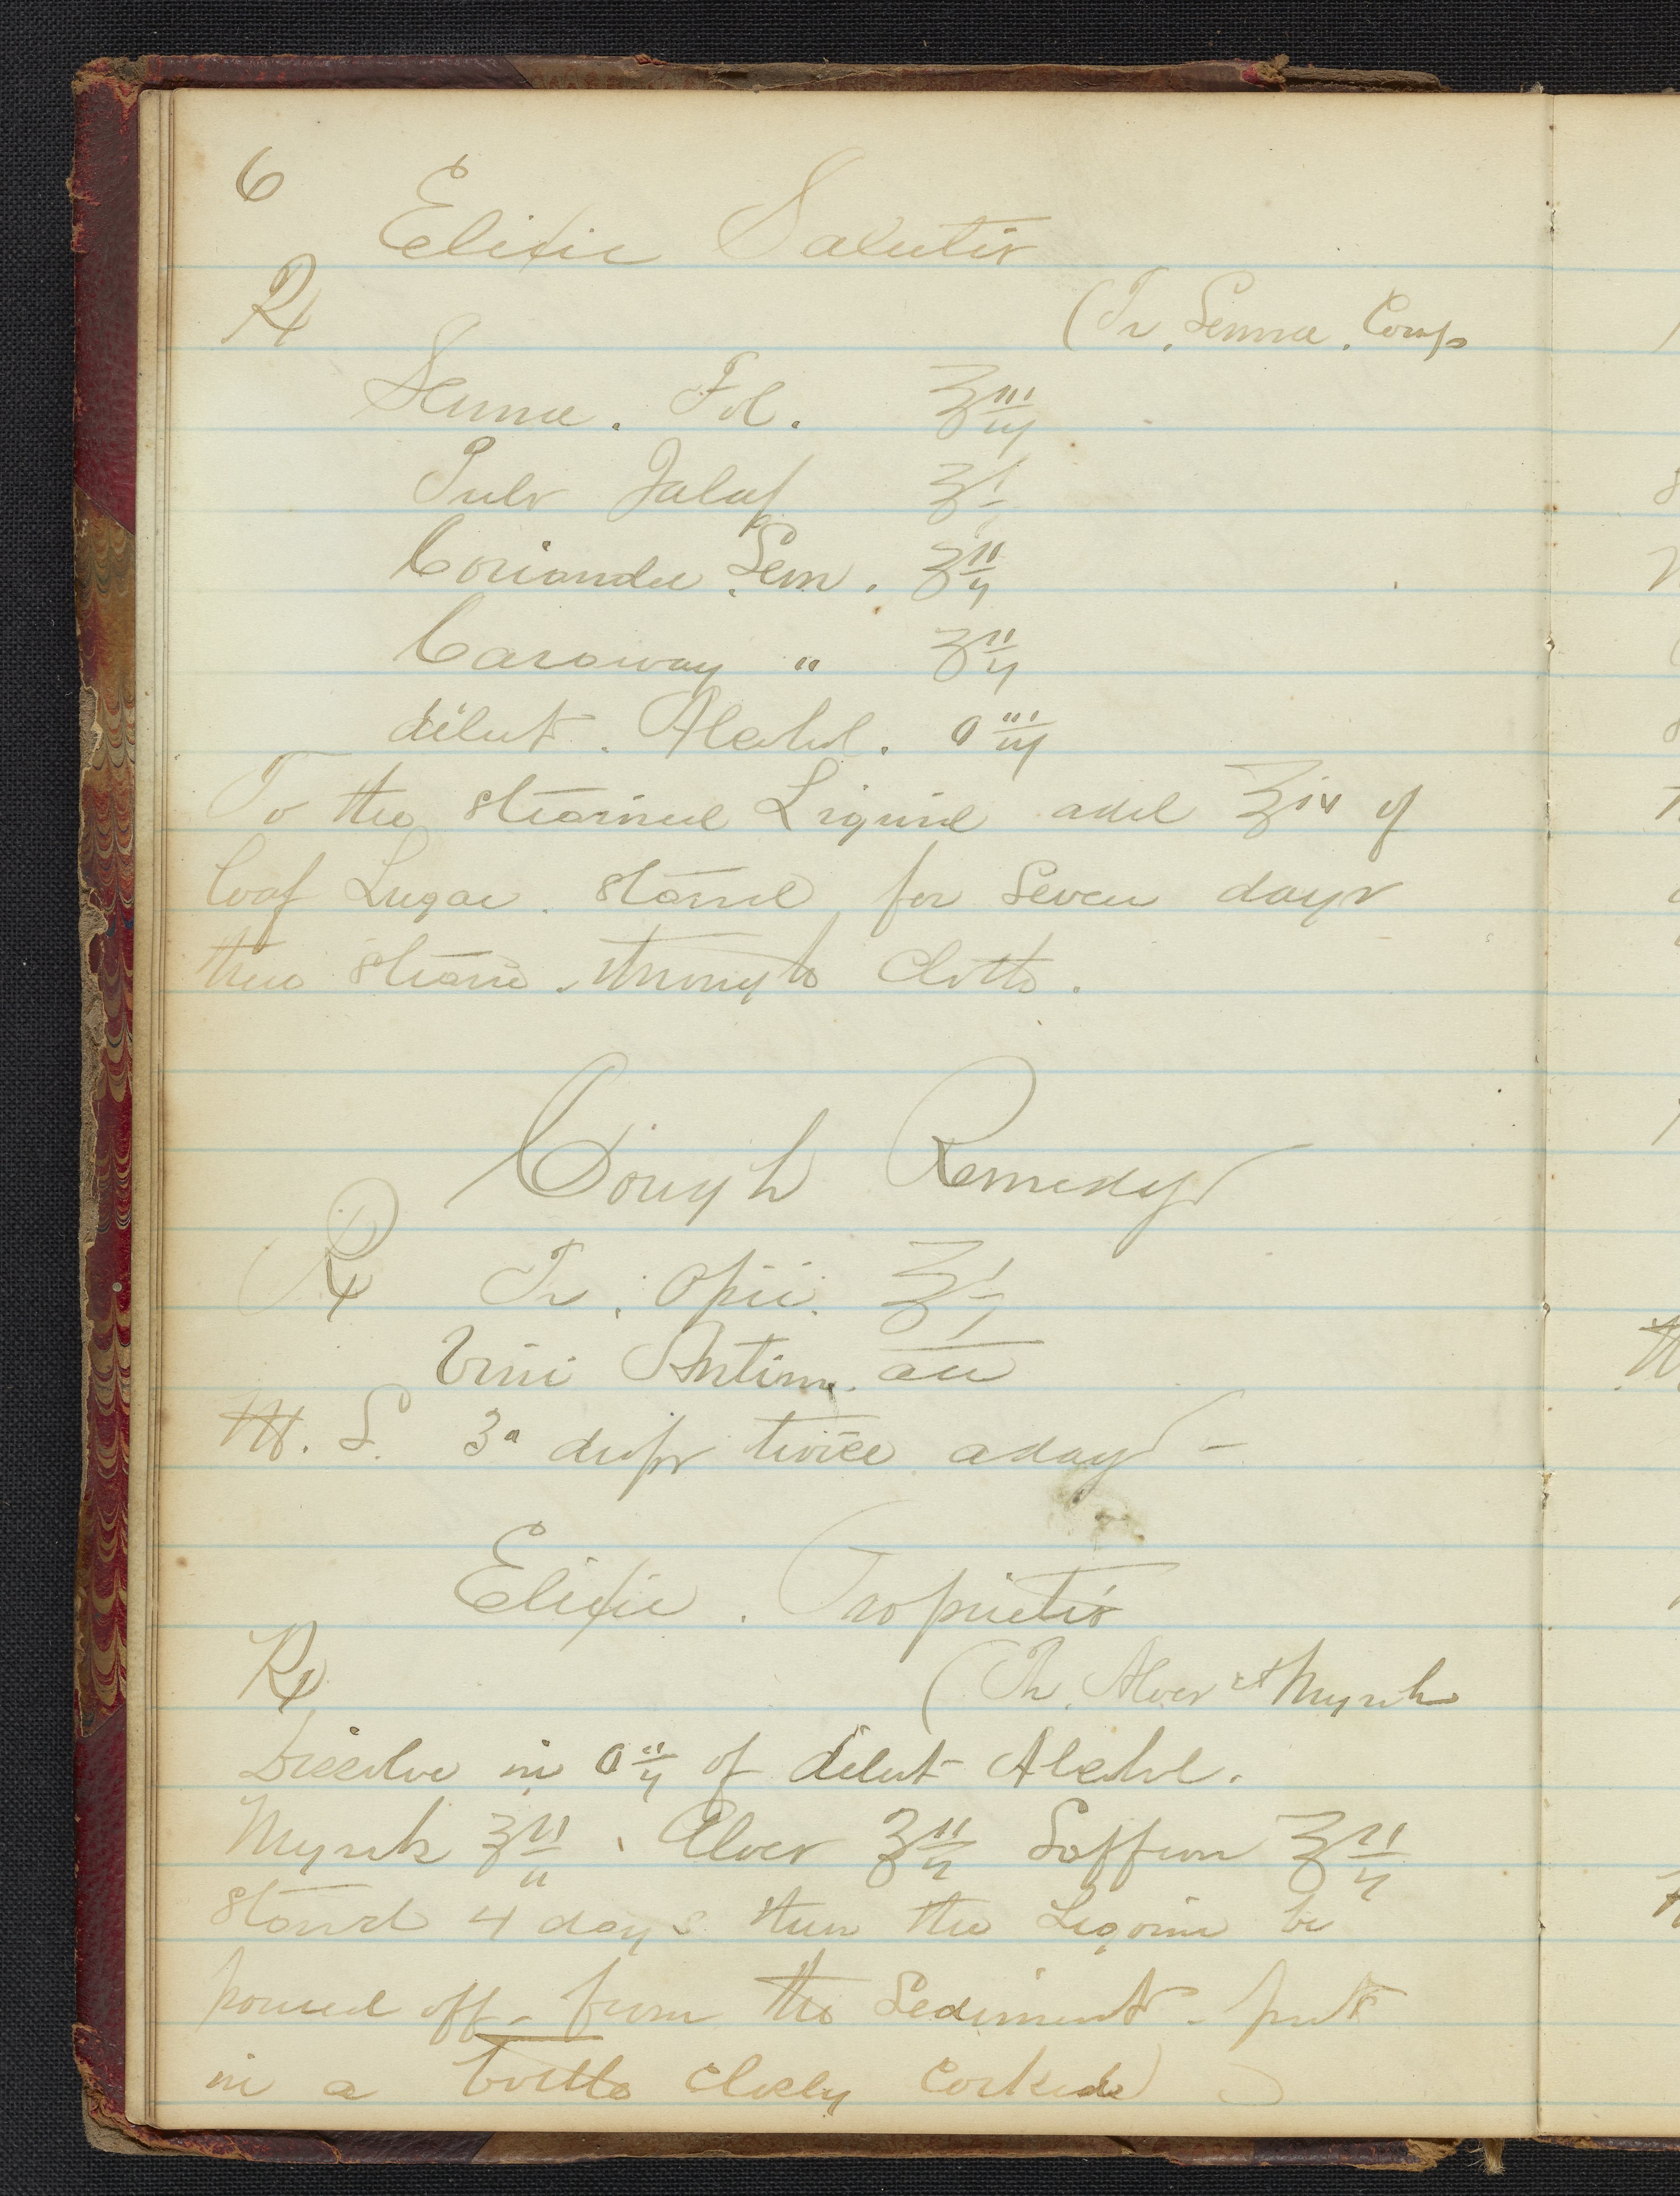 6
Elixir Salutis
℞
(Tr. Senna. Comp
Senna. Fol. ℥iij
Pulv Jalap ℥j
Coriander. Sem. ʒij
Caraway " ʒij
dilut. Alcohol. O iij
To the strained Liquid add ℥iv of
loaf Sugar. stand for Seven days
then strain. through Cloth.
Cough Remedy
℞ Tr. Opii. ʒj
Vini Antim. aa
M. S. 30 drops twice a day -
Elixir. Proprietis
℞
(Tr. Aloes et Myrrh
Dissolve in O ij of dilut Alcohol.
Myrrh ʒij. Aloes ʒij Saffron ʒij
stand 4 days then the Liquid be
poured off - from the Sediment - put
in a bottle closely corked